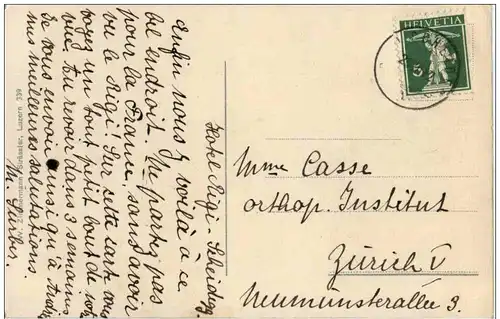 Hotel Rigi-Scheidegg.
Enfin nous y voilà à ce
bel endroit. Ne partez pas
pour la France, sans avoir
vu le Rigi! Sur cette carte vous
voyez un tout petit bout de notre
vue. Au revoir dans 3 semaines
Je vous envoie ainsi qu'à
mes meilleures salutations.
M. Furber.
Luzern 339
HELVETIA
5
Mme Casse
orthop. Institut
Zürich V
Neumünsterallee 3.